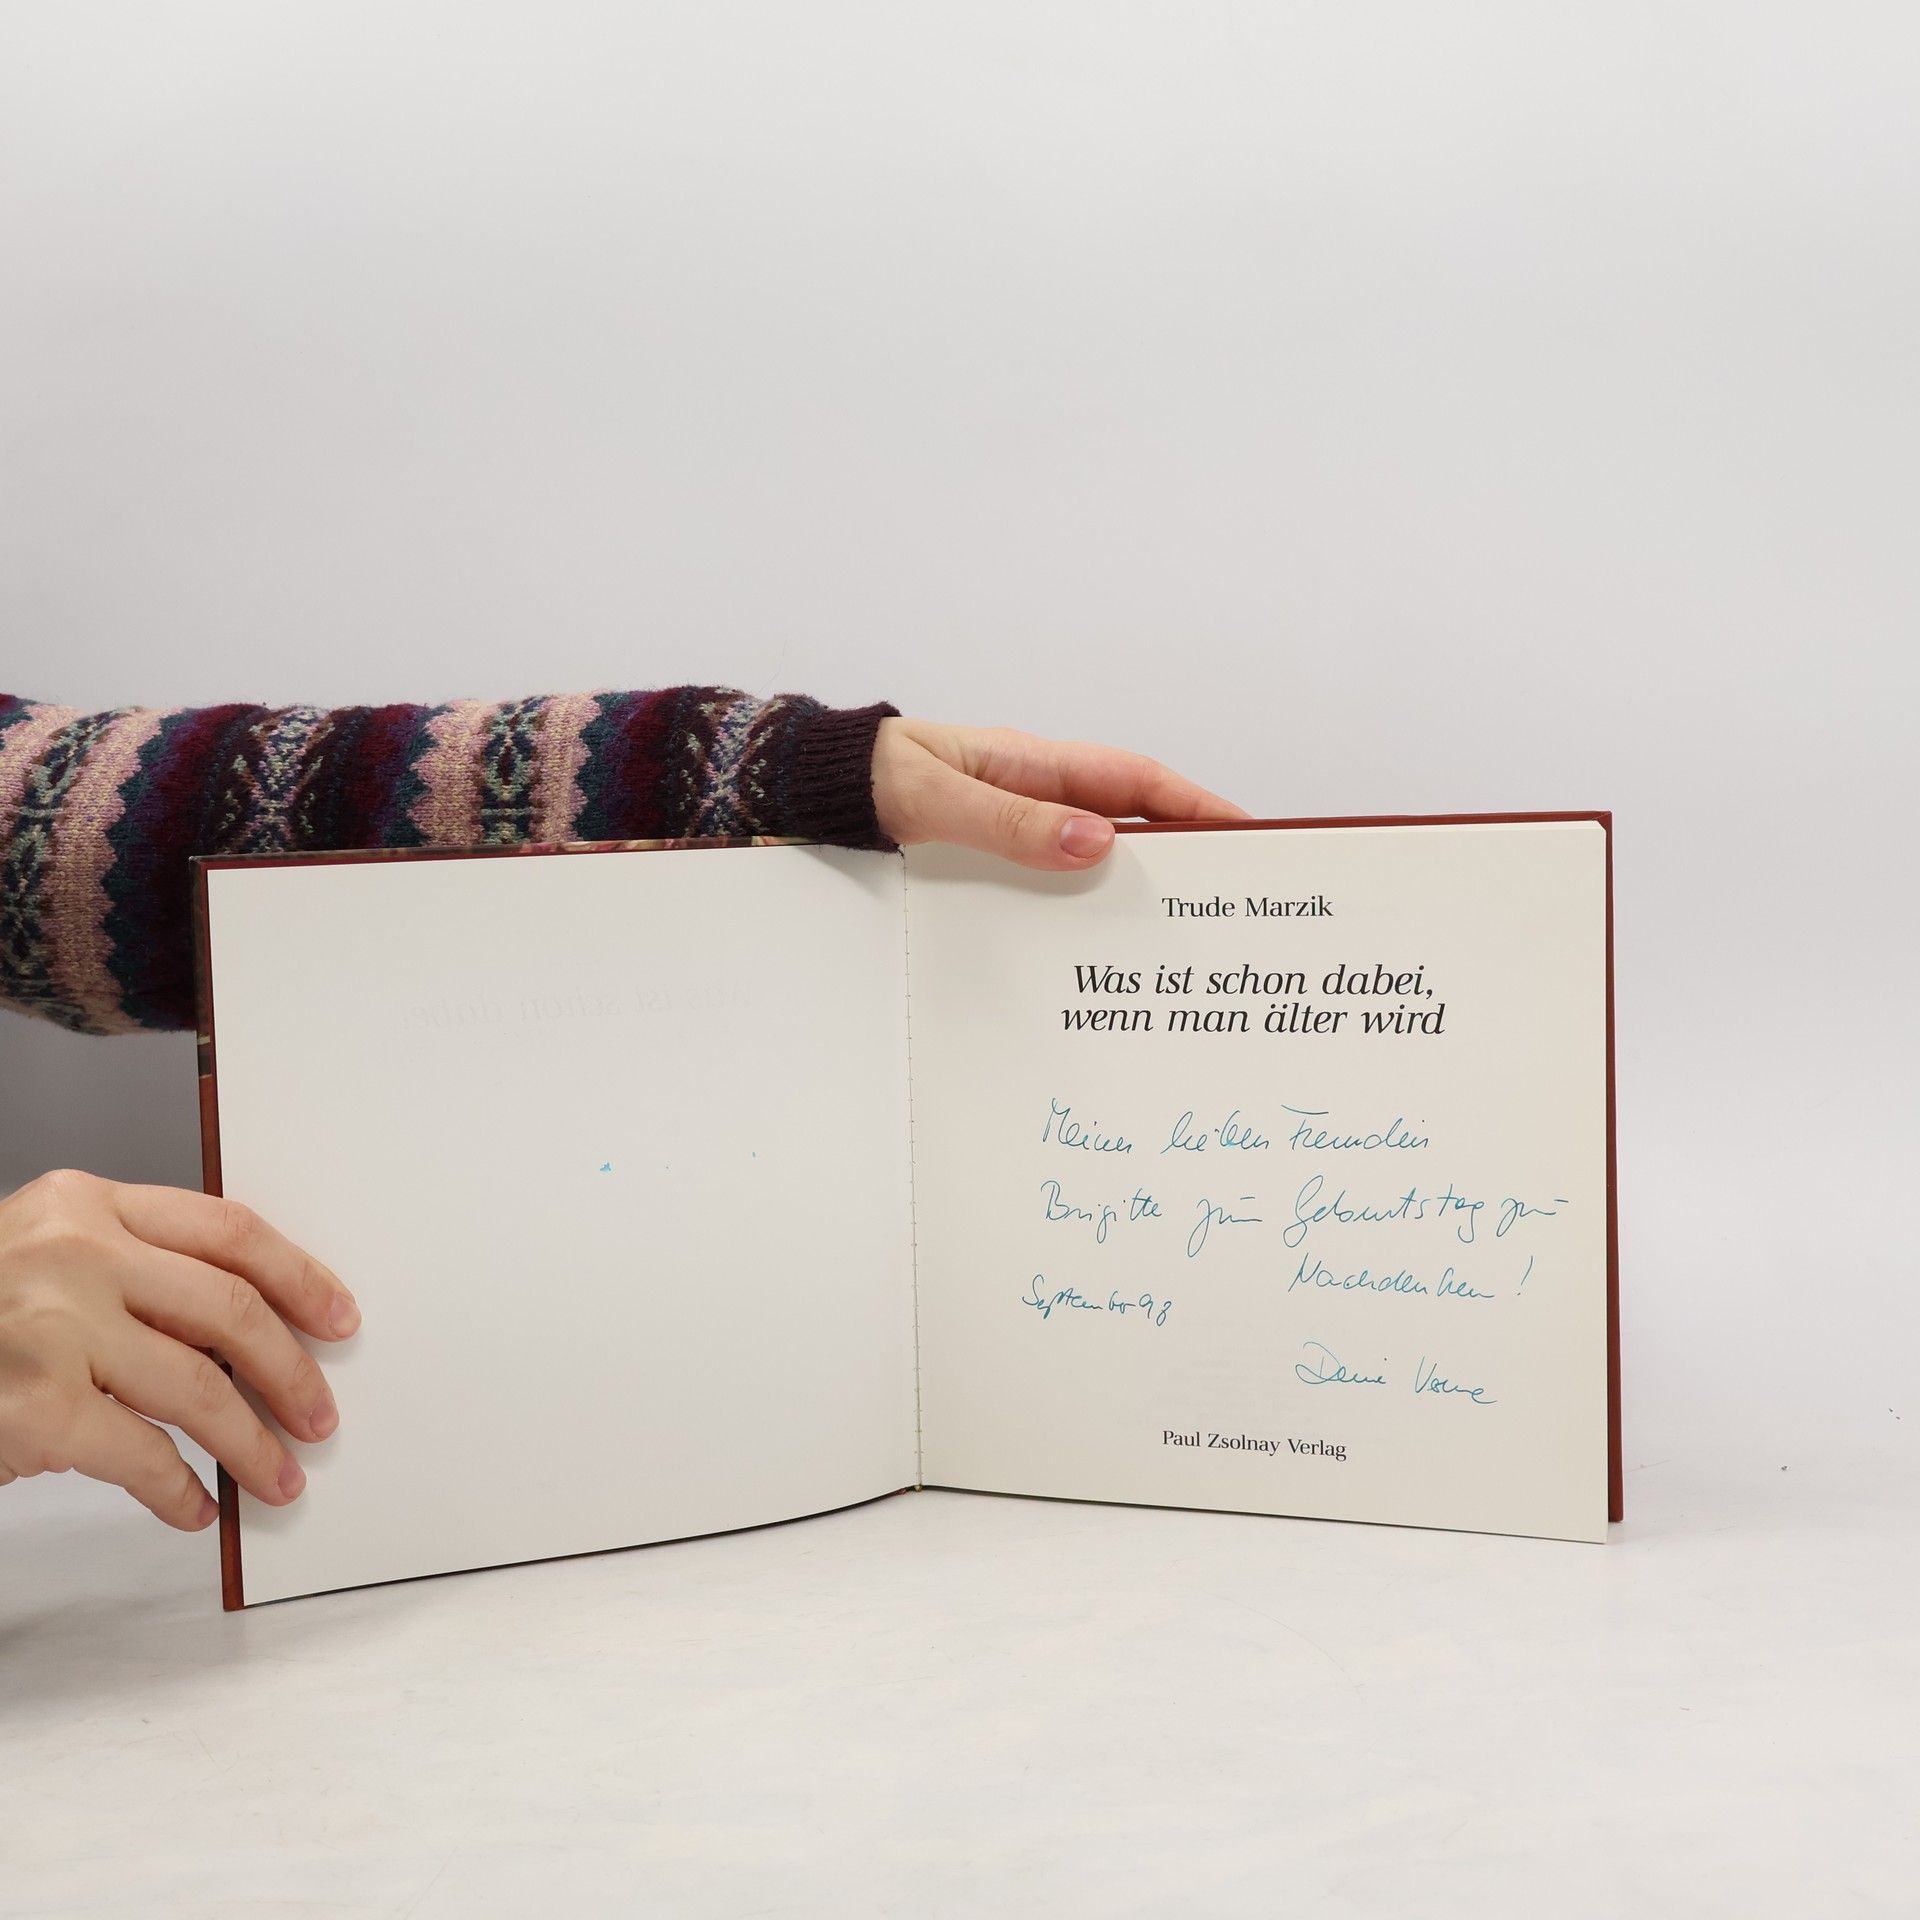 Trude Marzik
Was ist schon dabei,
wenn man älter wird
Meiner lieben Freundin
Brigitte zum Geburtstag zum
Nachdenken!
September 98
Deine
Paul Zsolnay Verlag